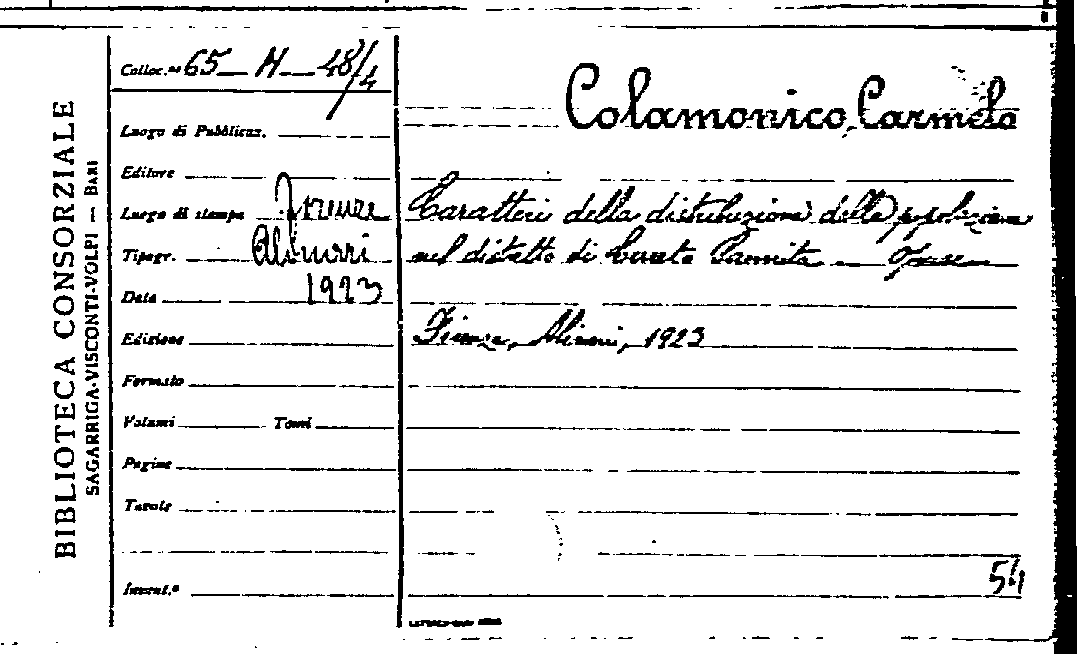 BIBLIOTECA CONSORZIALE
SAGARRIGA-VISCONTI-VOLPI — BARI
Colloc.ne 65 - H - 48/4
Luogo di Pubblicaz.
Editore
Luogo di stampa Firenze
Tipogr. Alinari
Data 1923
Edizione
Formato
Volumi Tomi
Pagine
Tavole
Invent.º
Colamonico, Carmelo
Caratteri della distribuzione della popolazione
nel distretto di
Firenze, Alinari, 1923
54